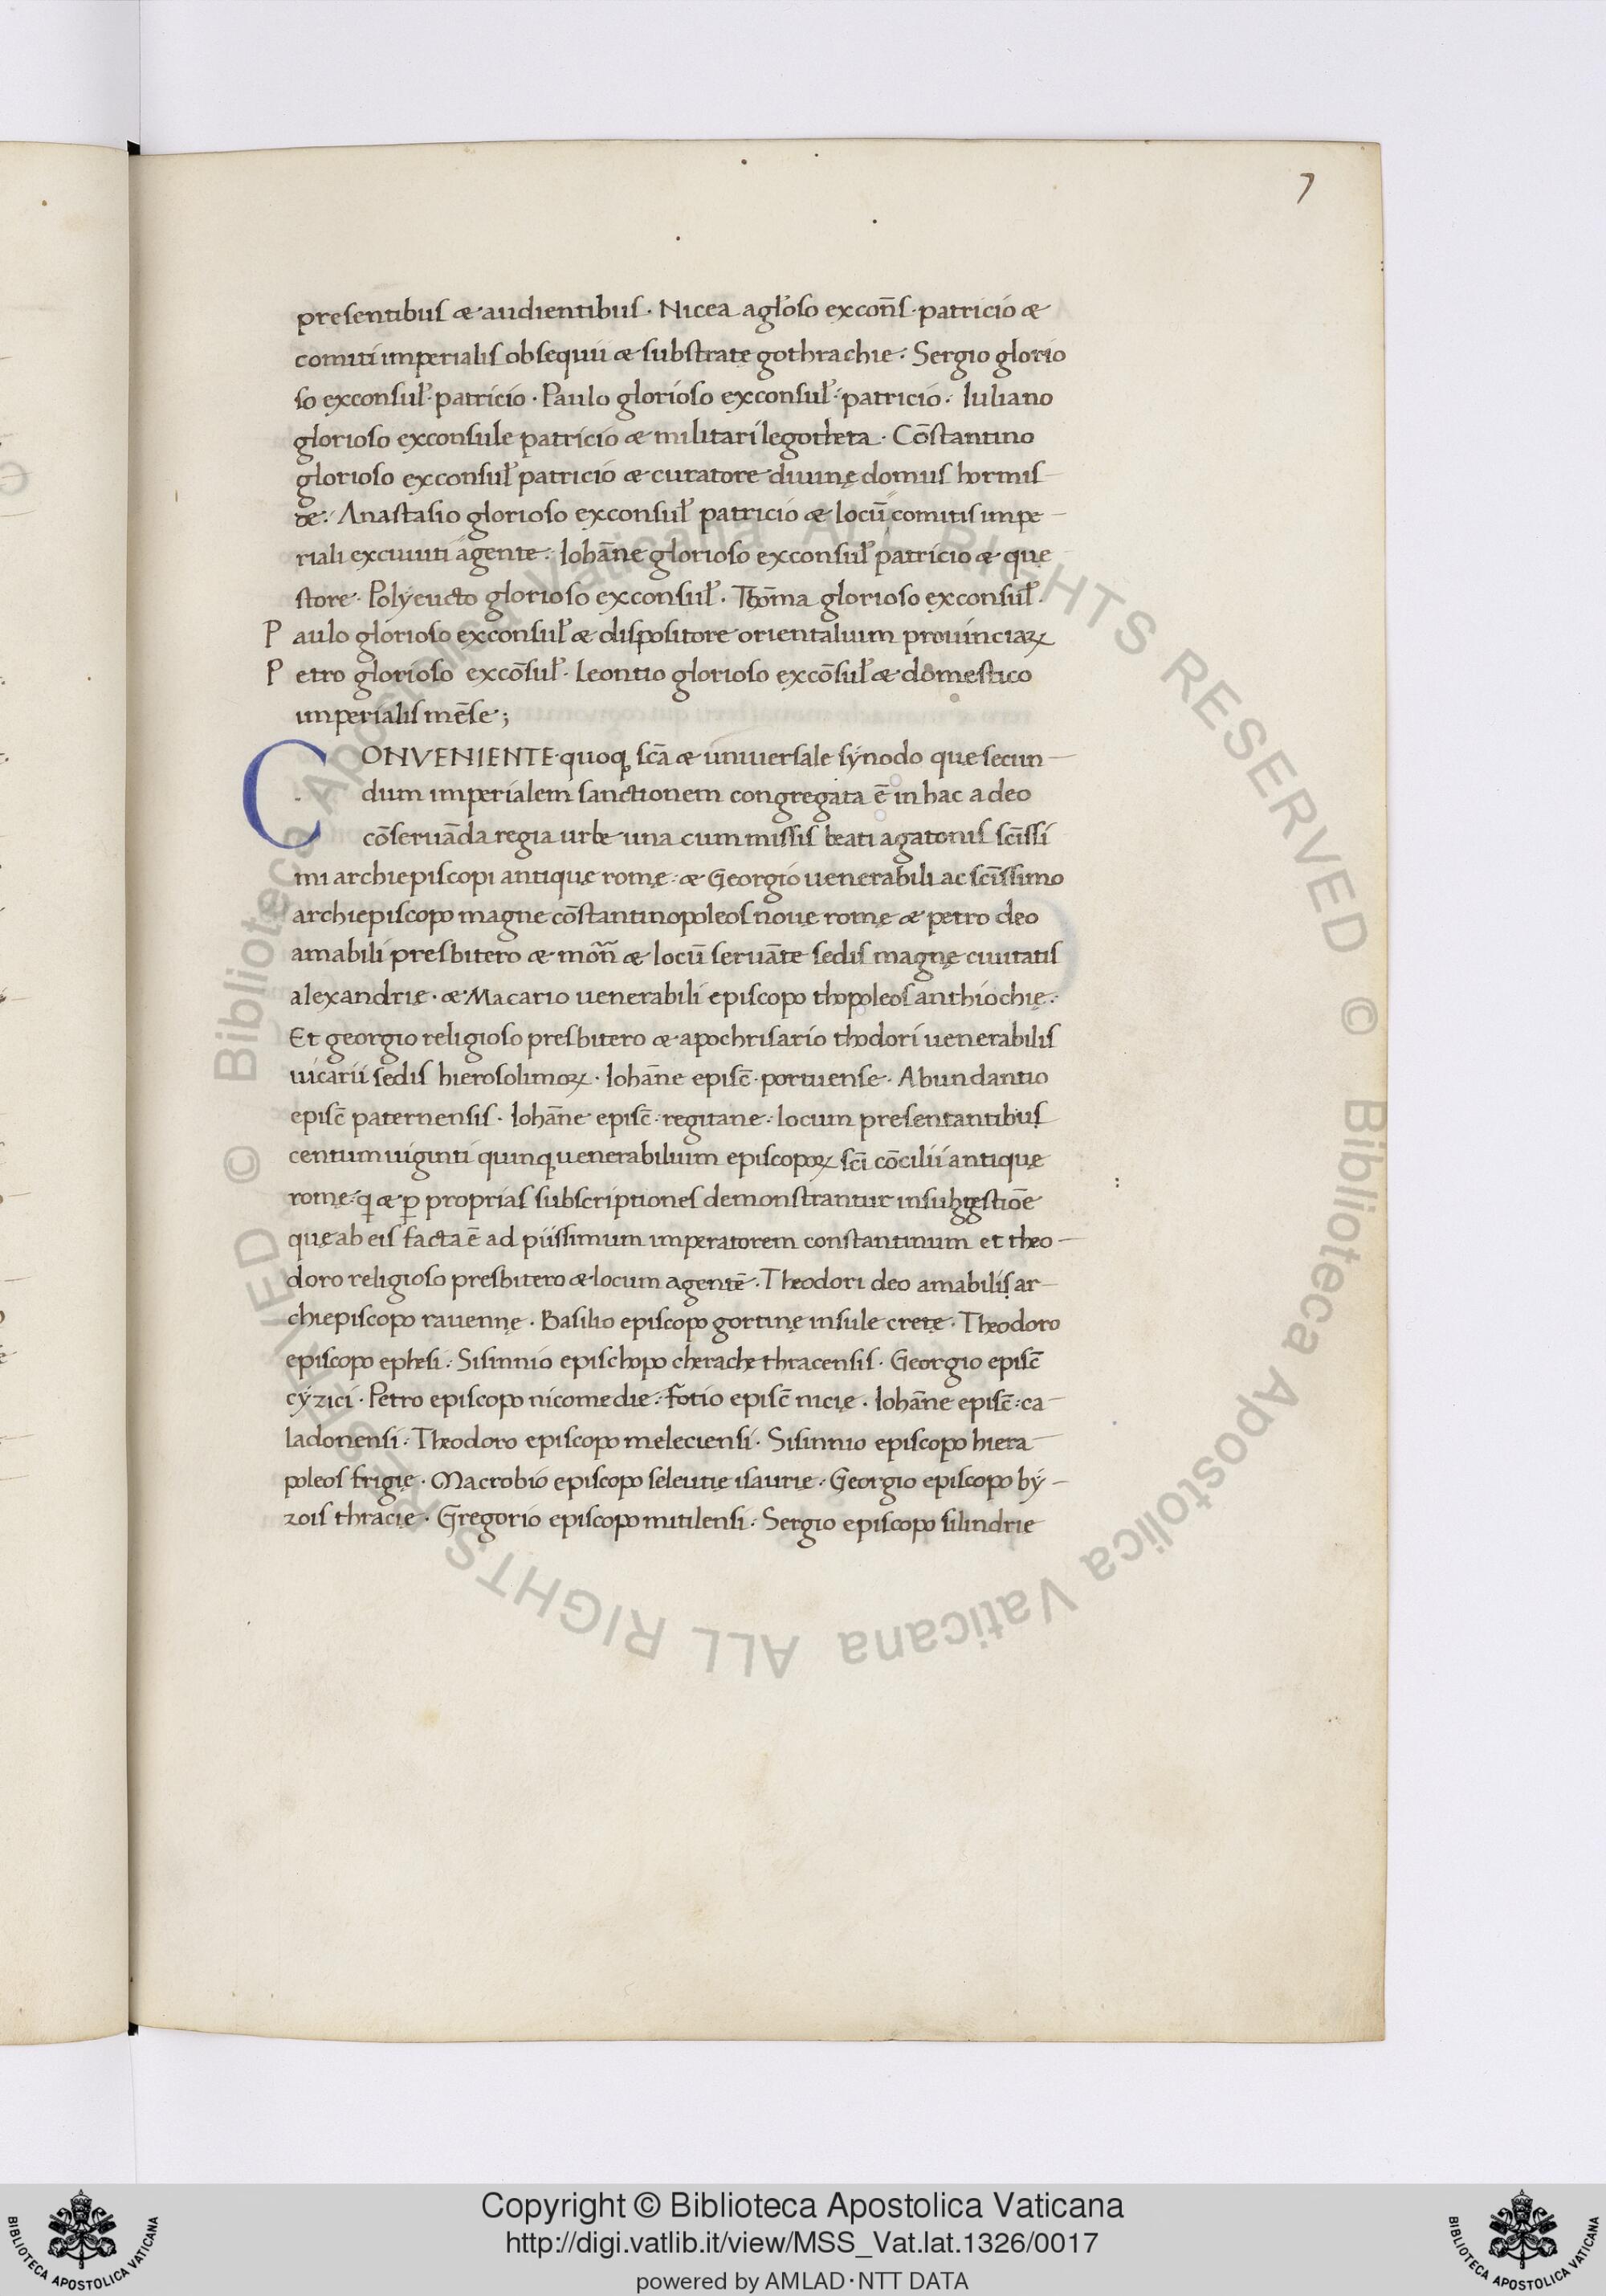 7
presentibus & audientibus · Nicea a gl̄oso excons̄ · patricio &
comiti imperialis obsequii & substratę gothrachie · Sergio glorio
so exconsul̄ · patricio · Paulo glorioso exconsul̄ · patricio · Iuliano
glorioso exconsule patricio & militari legotheta · Cōstantino
glorioso exconsul̄ patricio & curatore diuinę domus hormis
de · Anastasio glorioso exconsul̄ patricio & locū comitis impe
riali excuuiti agente · Iohān̄e glorioso exconsul̄ patricio & quę
store · Polyeucto glorioso exconsul̄ · Thōma glorioso exconsul̄ ·
Paulo glorioso exconsul̄ & dispositore orientalium prouinciaꝝ
Petro glorioso excōsul̄ · Leontio glorioso excōsul̄ & domestico
imperialis mēse ;
CONVENIENTE · quoq; scā & uniuersale synodo que secun
dum imperialem sanctionem congregata ē in hac a deo
cōseruāda regia urbe una cum missis beati agatonis scīssi
mi archiepiscopi antiquę romę · & Georgio uenerabili ac scīssimo
archiepiscopo magne cōstantinopoleos nouę romę & petro deo
amabili presbitero & mon̄ & locū seruāte sedis magnę ciuitatis
alexandrię · & Macario uenerabili episcopo thopoleos anthiochię ·
Et georgio religioso presbitero & apochrisario thodori uenerabilis
uicarii sedis hierosolimoꝝ · Iohāne episc̄ · portuense · Abundantio
episc̄ paternensis · Iohāne episc̄ · regitane · locum presentantibus
centum uiginti quinq; uenerabilium episcopoꝝ sci̅ cōcilii antiquę
romę · q̄ & ꝑ proprias subscriptiones demonstrantur in suggestiōe
quę ab eis facta ē ad piissimum imperatorem constantinum et theo
doro religioso presbitero & locum agentē · Theodori deo amabilis ar
chiepiscopo rauennę · Basilio episcopo gortinę insule cretę · Theodoro
episcopo ephesi · Sisinnio epischopo cherache thracensis · Georgio episc̄
cyzici · Petro episcopo nicomedie · Fotio episc̄ nicię · Iohāne episc̄ · ca
ladonensi · Theodoro episcopo meleciensi · Sisinnio episcopo hiera
poleos frigię · Macrobio episcopo seleutię isaurię · Georgio episcopo by
zois thracię · Gregorio episcopo mitilensi · Sergio episcopo silindrię
© Biblioteca Apostolica Vaticana ALL RIGHTS RESERVED
© Biblioteca Apostolica Vaticana ALL RIGHTS RESERVED
Copyright © Biblioteca Apostolica Vaticana
http://digi.vatlib.it/view/MSS_Vat.lat.1326/0017
powered by AMLAD·NTT DATA
BIBLIOTECA APOSTOLICA VATICANA
BIBLIOTECA APOSTOLICA VATICANA